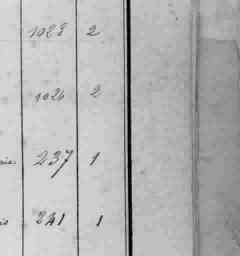 1028 2
1026 2
237 1
241 1